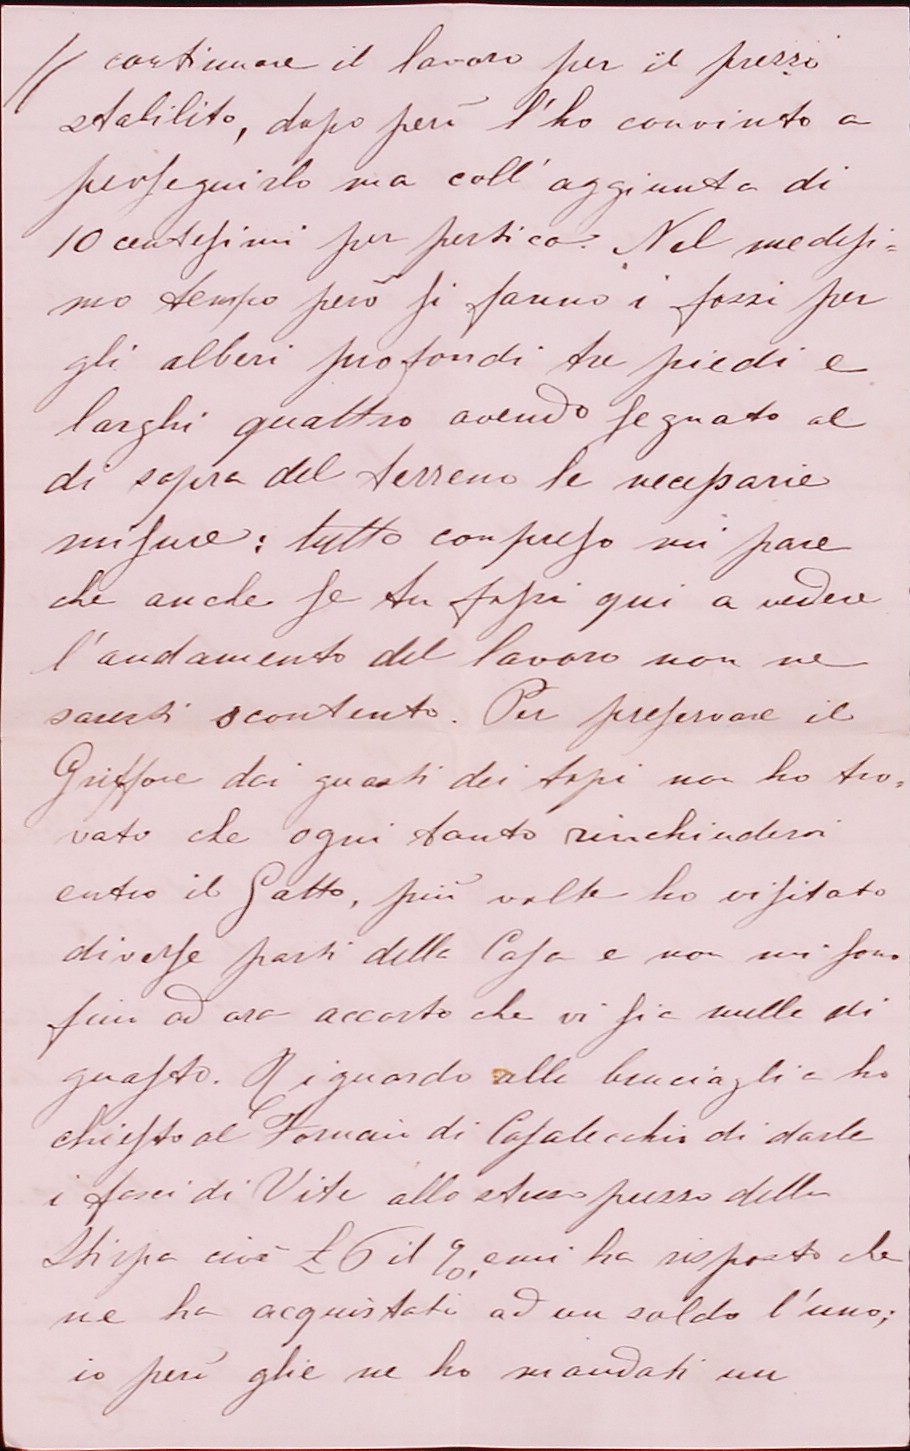 // continuare il lavoro per il prezzo
stabilito, dopo però l'ho convinto a
perseguirlo ma coll'aggiunta di
10 centesimi per pertica. Nel medesi=
mo tempo però si fanno i fossi per
gli alberi profondi tre piedi e
larghi quattro avendo segnato al
di sopra del terreno le necessarie
misure: tutto compreso mi pare
che anche se tu fossi qui a vedere
l'andamento del lavoro non ne
saresti scontento. Per preservare il
Griffone dai guasti dei topi non ho tro=
vato che ogni tanto rinchiudervi
entro il Gatto, più volte ho visitato
diverse parti della Casa e non mi sono
fin ad ora accorto che vi sia nulla di
guasto. Riguardo alla bruciaglia ho
chiesto al Fornaio di Casalecchio di darle
i fasci di Vite allo stesso prezzo della
Stirpa cioè £ 6 il %, e mi ha risposto che
ne ha acquistati ad un soldo l'uno;
io però glie ne ho mandati un